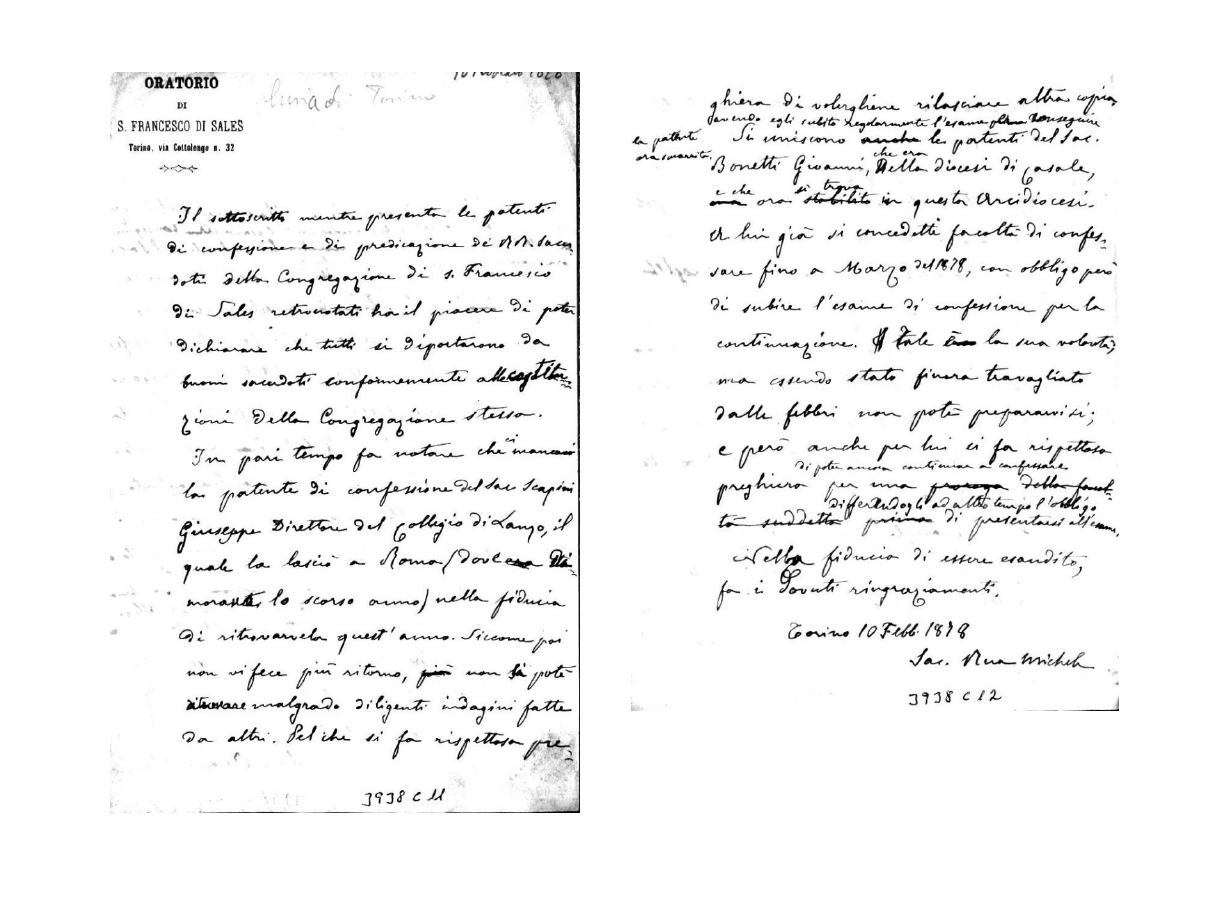 10 Febbraio 1878
ORATORIO
DI
S. FRANCESCO DI SALES
Torino, via Cottolengo n. 32
Curia di Torino
Il sottoscritto mentre presenta le patenti
di confessione e di predicazione de' RR. Sacer-
doti della Congregazione di S. Francesco
di Sales retronotati ha il piacere di poter
dichiarare che tutti si diportarono da
buoni sacerdoti conformemente alle costitu-
zioni della Congregazione stessa.
In pari tempo fa notare che ci mancano
la patente di confessione del Sac. Scapini
Giuseppe Direttore del Collegio di Lanzo, il
quale la lasciò a Roma (dove era di-
morante lo scorso anno) nella fiducia
di ritrovarvela quest'anno. Siccome poi
non vi fece più ritorno, più non si potè
ritrovare malgrado diligenti indagini fatte
da altri. Pel che si fa rispettosa pre-
3938 C 11
ghiera di volergliene rilasciare altra copia
avendo egli subito regolarmente l'esame conseguire
la patente
ora smarrita.
Si uniscono anche le patenti del Sac.
Bonetti Giovanni, che era della diocesi di Casale,
e che ora si trova stabilito in questa Arcidiocesi.
A lui già si concedette facoltà di confes-
sare fino a Marzo del 1878, con obbligo però
di subire l'esame di confessione per la
continuazione. Tale era la sua volontà;
ma essendo stato finora travagliato
dalle febbri non potè prepararvisi;
e però anche per lui ci fa rispettosa
di poter ancora continuare a confessare
preghiera per una proroga della facol-
differendogli ad altro tempo l'obbligo
tà suddetta prima di presentarsi all'esame.
Nella fiducia di essere esaudito,
fa i dovuti ringraziamenti.
Torino 10 Febb. 1878
Sac. Rua Michele
3938 C 12